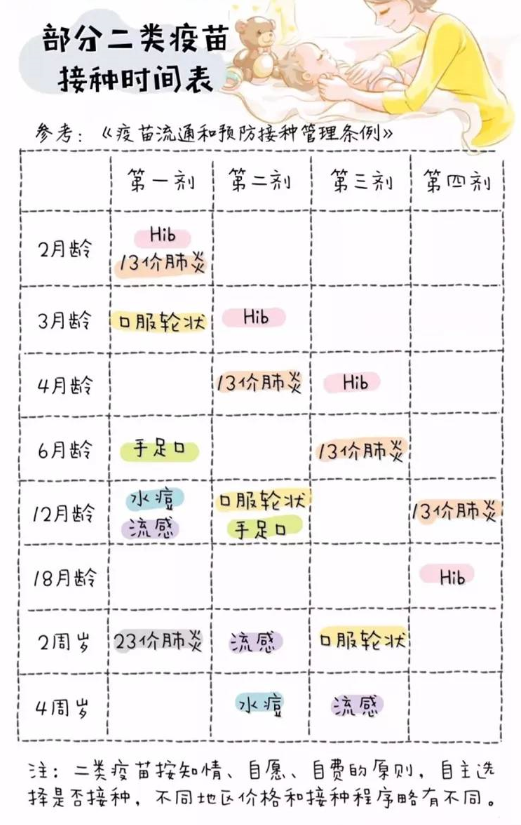 部分二类疫苗
接种时间表
参考：《疫苗流通和预防接种管理条例》
第一剂 第二剂 第三剂 第四剂
2月龄 Hib
13价肺炎
3月龄 口服轮状 Hib
4月龄 13价肺炎 Hib
6月龄 手足口 13价肺炎
12月龄 水痘 口服轮状 13价肺炎
流感 手足口
18月龄 Hib
2周岁 23价肺炎 流感 口服轮状
4周岁 水痘 流感
注：二类疫苗按知情、自愿、自费的原则，自主选
择是否接种，不同地区价格和接种程序略有不同。